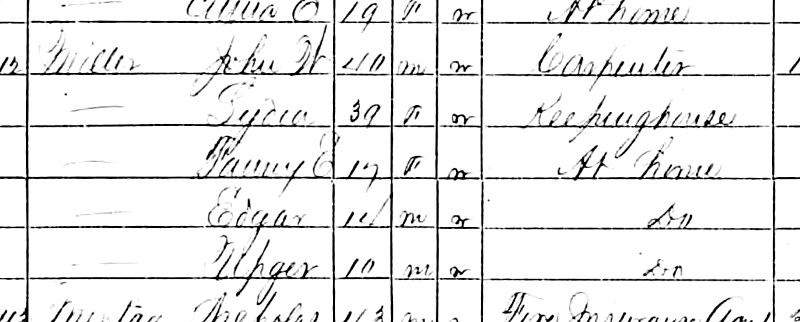 E 19 F w At home
12 Miller John W 40 m w Carpenter
— Lydia 39 F w Keeping house
— Fanny E 17 F w At home
— Edgar 14 m w Do
— 10 m w Do
43 m w Fire Insurance